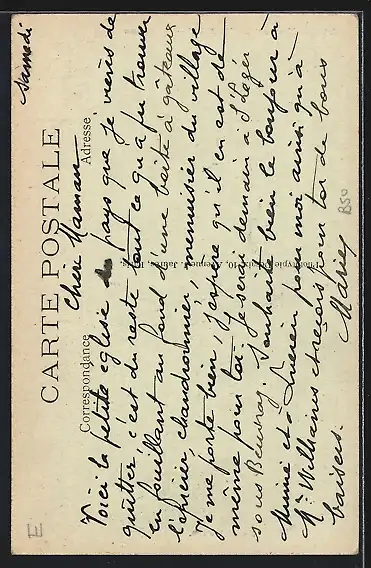 Samedi
CARTE POSTALE
Correspondance
Adresse
Chère Maman
Voici la petite église du pays que je viens de
quitter, c'est du reste tout ce qu'a pu trouver
en fouillant au fond d'une boite à gâteaux
l'épicier, chaudronnier, menuisier du village
Je me porte bien, j'espère qu'il en est de
même pour toi. Je serai demain à St Léger
sous Beuvray. Souhaite bien le bonjour à
Mimi et à Lucien pour moi ainsi qu'à
Mr Williames et reçois pour toi de bons
baisers.
Marie
B50
E